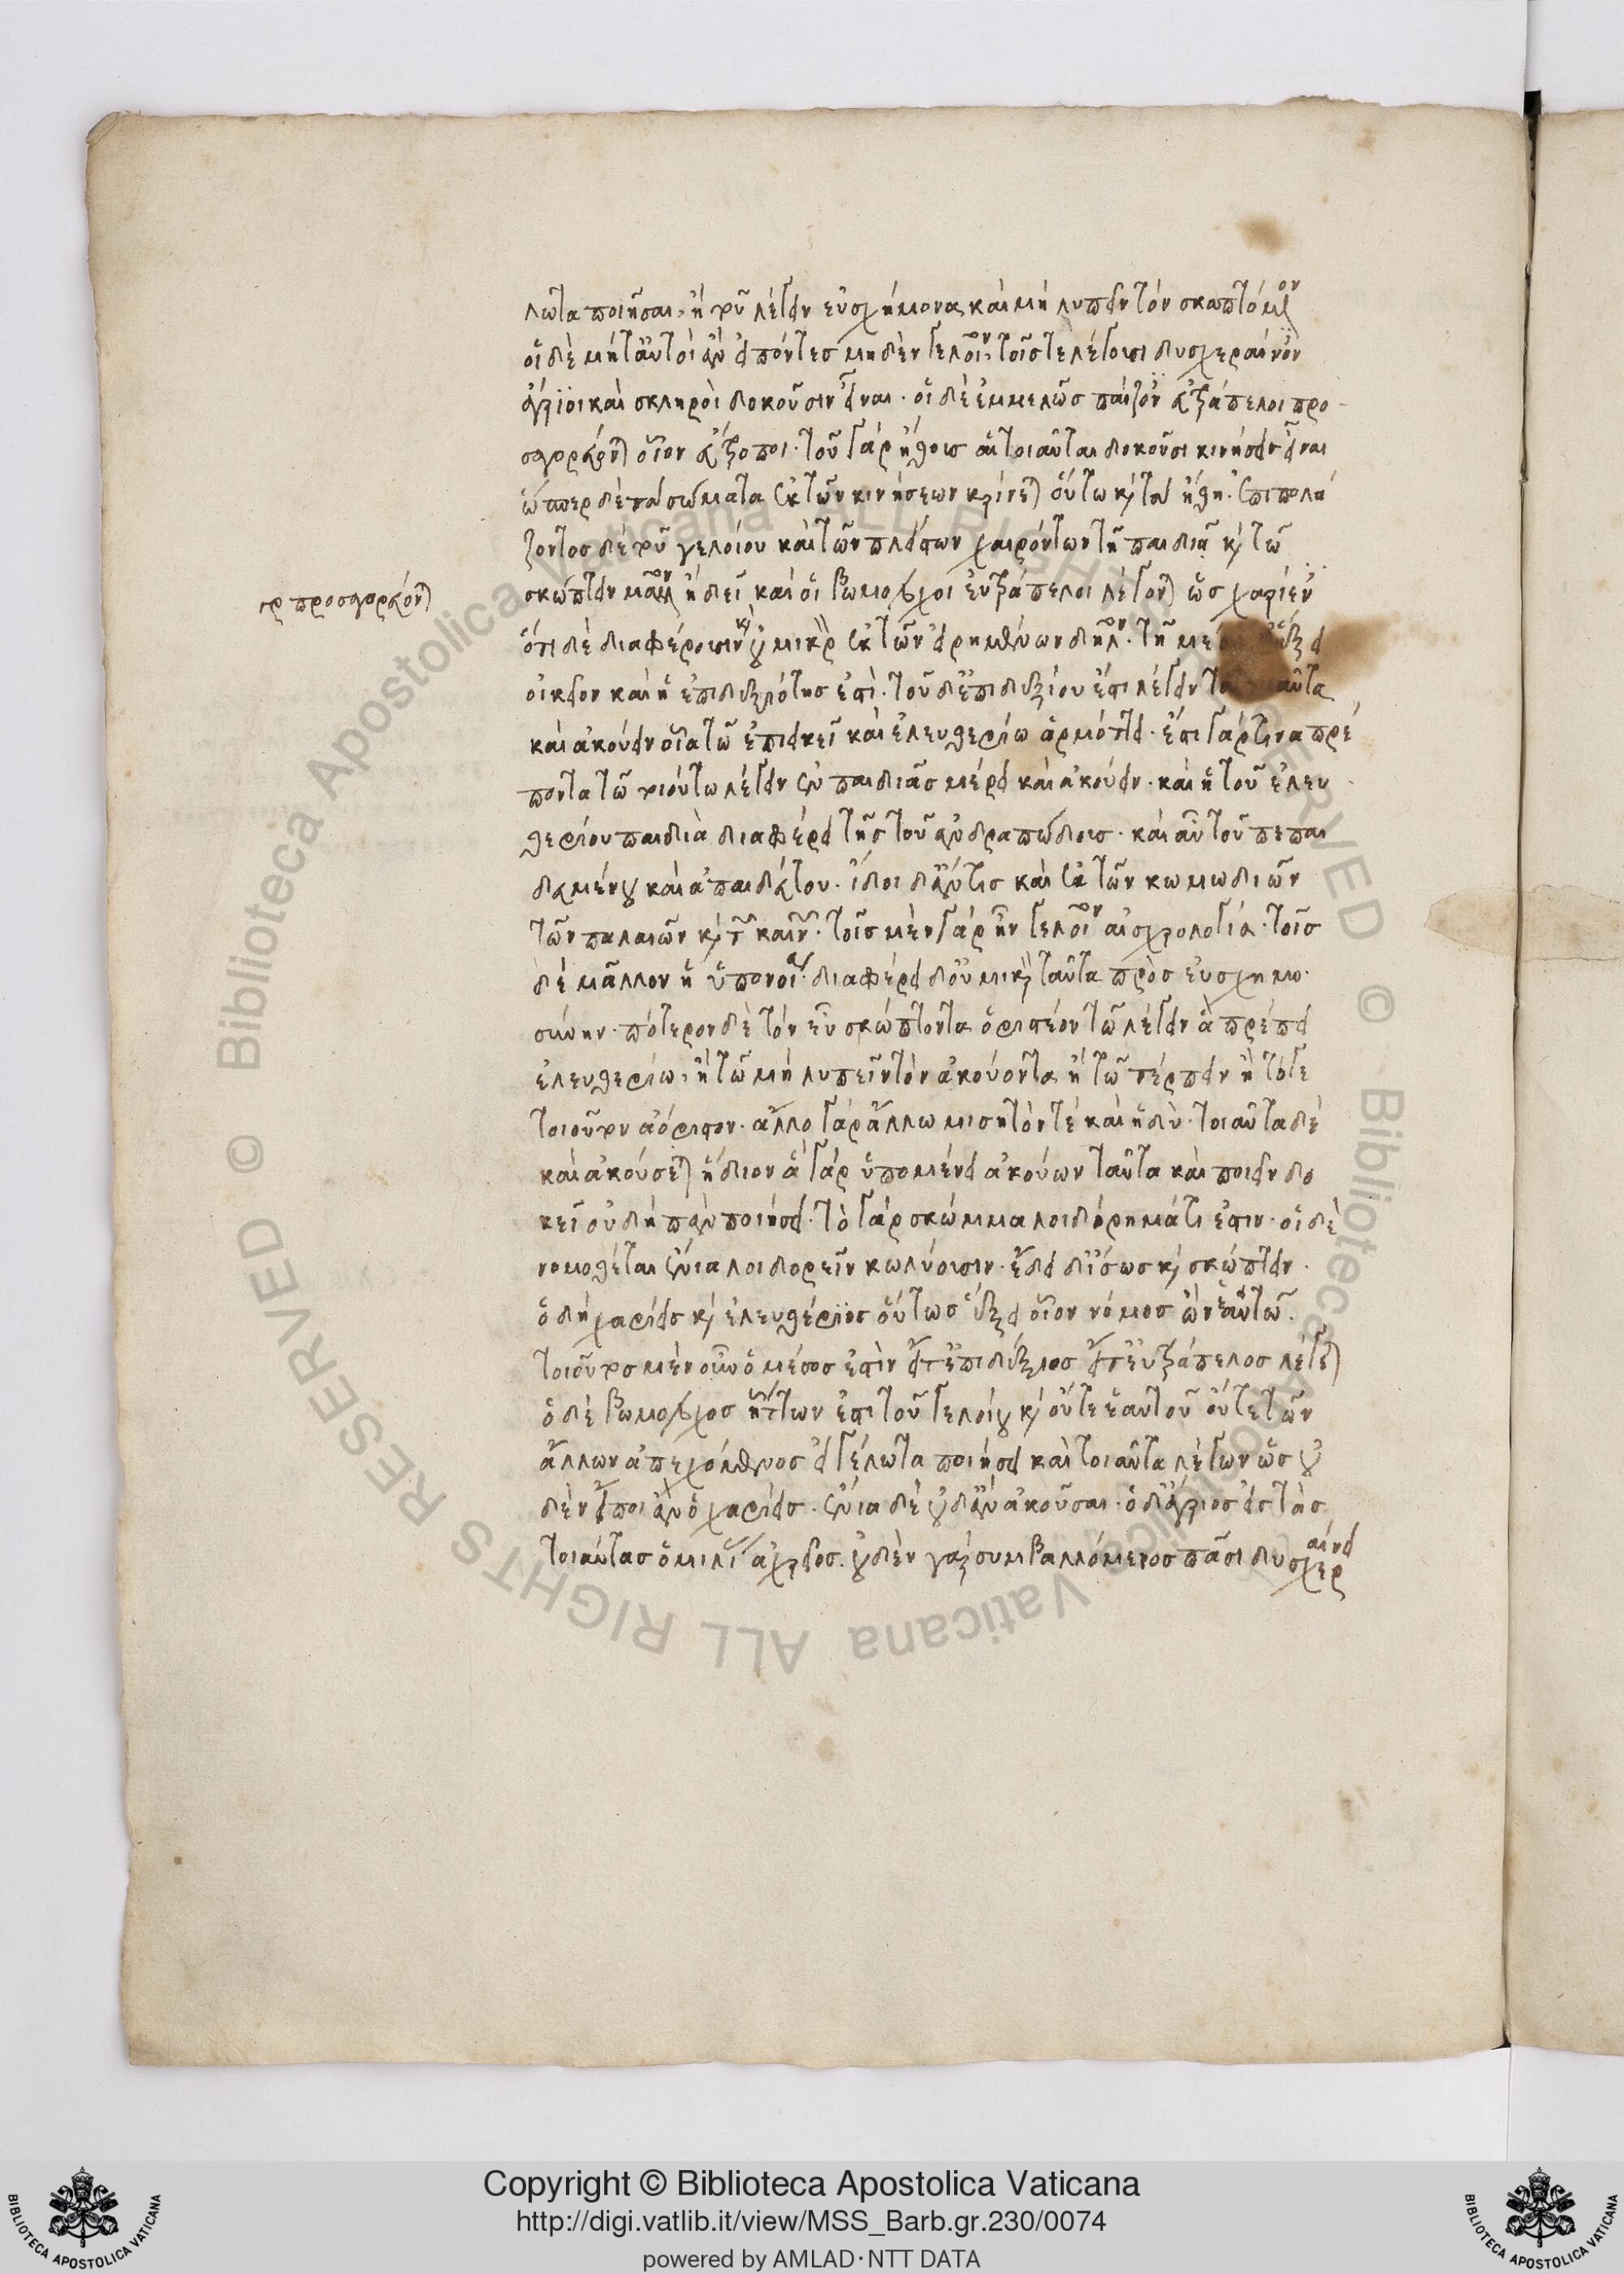 λωτα ποιῆσαι, ἢ τοῦ λέγειν εὐσχήμονα, καὶ μὴ λυπεῖν τὸν σκωπτόμενον
οἱ δὲ μήτ' αὐτοὶ ἂν εἰπόντες μηδὲν γελοῖον, τοῖς τε λέγουσι δυσχεραίνοντες
ἄγριοι καὶ σκληροὶ δοκοῦσιν εἶναι · οἱ δὲ ἐμμελῶς παίζοντες εὐτράπελοι προ
σαγορεύονται οἷον εὔτροποι · τοῦ γὰρ ἤθους αἱ τοιαῦται δοκοῦσι κινήσεις εἶναι
ὥσπερ δὲ τὰ σώματα ἐκ τῶν κινήσεων κρίνεται οὕτω καὶ τὰ ἤθη · ἐπιπολά
ζοντος δὲ τοῦ γελοίου καὶ τῶν πλείστων χαιρόντων τῇ παιδιᾷ καὶ τῷ
σκώπτειν μᾶλλον ἢ δεῖ καὶ οἱ βωμολόχοι εὐτράπελοι λέγονται ὡς χαρίεντες
γρ προσαγορεύονται
ὅτι δὲ διαφέρουσιν καὶ οὐ μικρὸν ἐκ τῶν εἰρημένων δῆλον · τῇ μέσῃ ἕξει
οἰκεῖον καὶ ἡ ἐπιδεξιότης ἐστὶ · τοῦ δ' ἐπιδεξίου ἐστὶ λέγειν τοιαῦτα
καὶ ἀκούειν οἷα τῷ ἐπιεικεῖ καὶ ἐλευθερίω ἁρμόττει · ἔστι γάρ τινα πρέ
ποντα τῷ τοιούτω λέγειν ἐν παιδιᾶς μέρει καὶ ἀκούειν · καὶ ἡ τοῦ ἐλευ
θερίου παιδιὰ διαφέρει τῆς τοῦ ἀνδραπώδους · καὶ αὖ τοῦ πεπαι
δευμένου καὶ ἀπαιδεύτου · ἴδοι δ' ἄν τις καὶ ἐκ τῶν κωμωδιῶν
τῶν παλαιῶν καὶ τῶν καινῶν · τοῖς μὲν γὰρ ἦν γελοῖον αἰσχρολογία · τοῖς
δὲ μᾶλλον ἡ ὑπόνοια · διαφέρει δ' οὐ μικρὸν ταῦτα πρὸς εὐσχημο
σύνην · πότερον δὲ τὸν εὖ σκώπτοντα ὁριστέον τῷ λέγειν ἃ πρέπει
ἐλευθερίω, ἢ τῷ μὴ λυπεῖν τὸν ἀκούοντα ἢ τῷ τέρπειν ἢ τό γε
τοιοῦτον ἀόριστον · ἄλλο γὰρ ἄλλω μισητόν τέ καὶ ἡδὺ · τοιαῦτα δὲ
καὶ ἀκούσεται ἥδιον ἃ γὰρ ὑπομένει ἀκούων ταῦτα καὶ ποιεῖν δο
κεῖ οὐ δὴ πᾶν ποιήσει · τὸ γὰρ σκῶμμα λοιδόρημά τι ἐστιν · οἱ δὲ
νομοθέται ἔνια λοιδορεῖν κωλύουσιν · ἔδει δ' ἴσως καὶ σκώπτειν ·
ὁ δὴ χαρίεις καὶ ἐλευθέριος οὕτως ἕξει οἷον νόμος ὢν ἑαυτῷ ·
τοιοῦτος μὲν οὖν ὁ μέσος ἐστὶν εἴτ' ἐπιδέξιος εἴτ' εὐτράπελος λέγεται
ὁ δὲ βωμολόχος ἥττων ἐστὶ τοῦ γελοίου καὶ οὔτε ἑαυτοῦ οὔτε τῶν
ἄλλων ἀπεχόμενος εἰ γέλωτα ποιήσει καὶ τοιαῦτα λέγων ὧν οὐ
δὲν εἴποι ἂν ὁ χαρίεις · ἔνια δὲ οὐδ' ἂν ἀκοῦσαι · ὁ δ' ἄγριος εἰς τὰς
τοιαύτας ὁμιλίας ἀχρεῖος · οὐδὲν γὰρ συμβαλλόμενος πᾶσι δυσχεραίνει
Copyright © Biblioteca Apostolica Vaticana
http://digi.vatlib.it/view/MSS_Barb.gr.230/0074
powered by AMLAD·NTT DATA
BIBLIOTECA APOSTOLICA VATICANA
BIBLIOTECA APOSTOLICA VATICANA